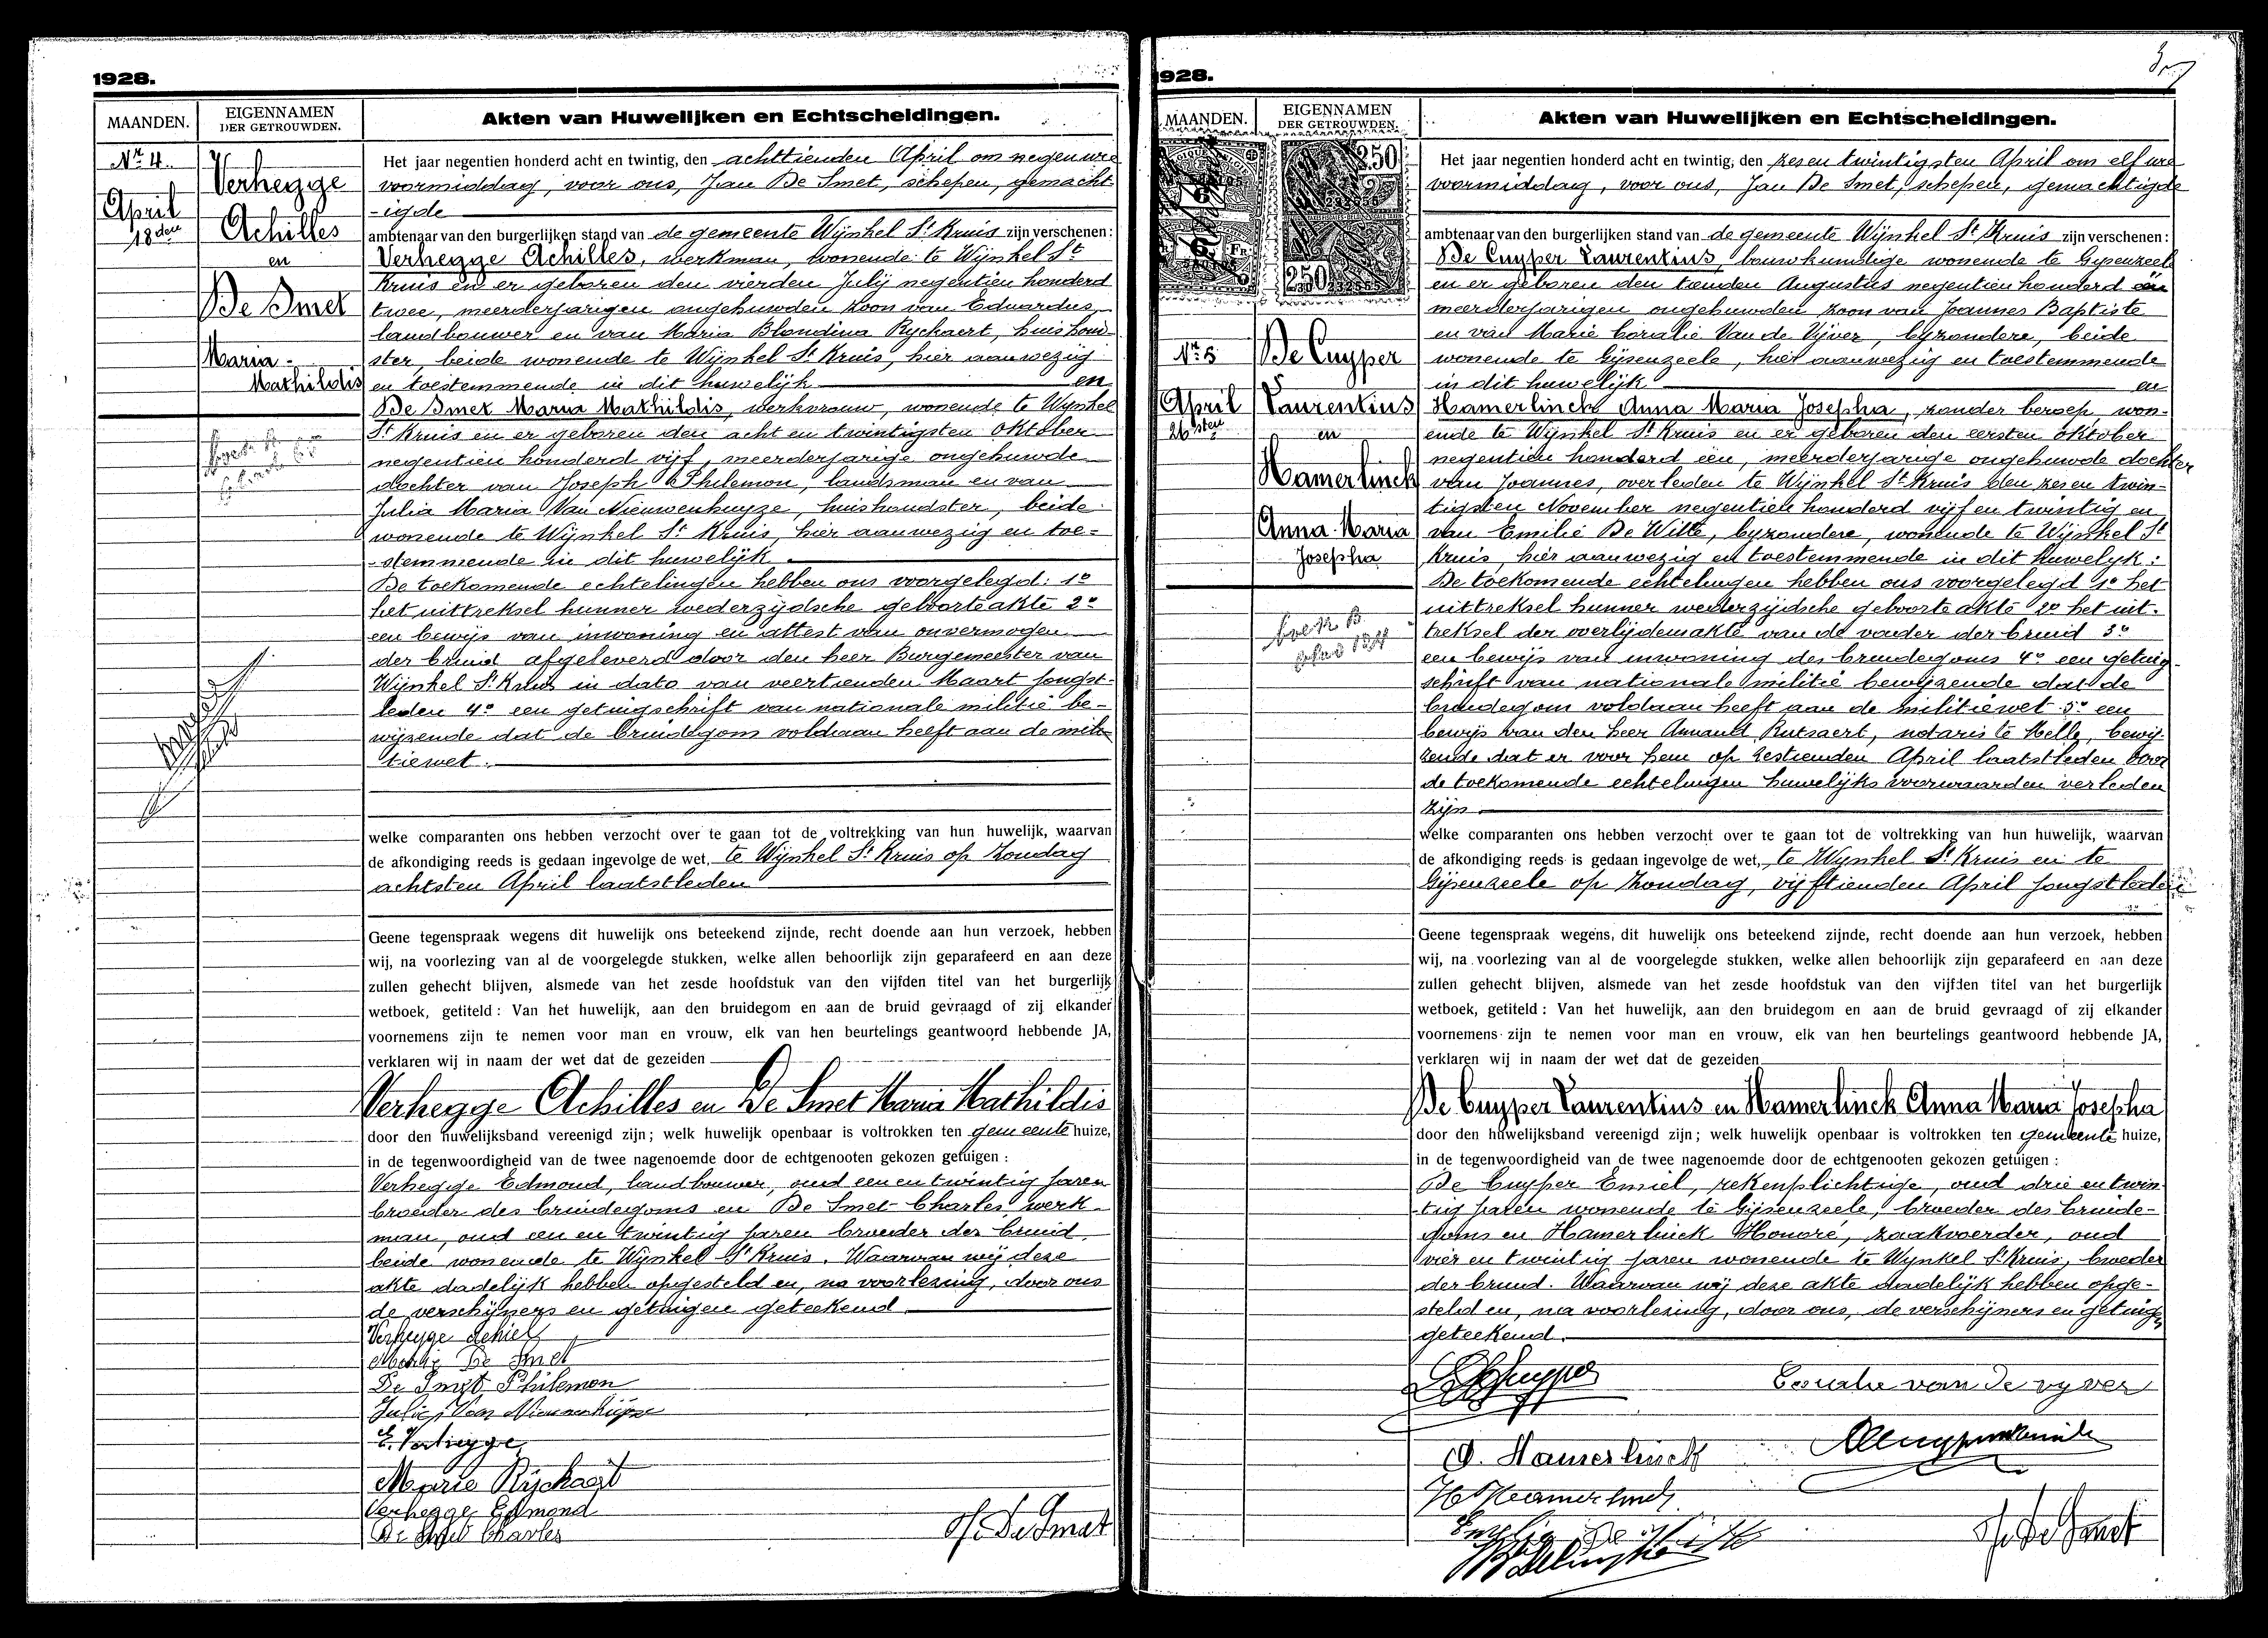 1928.
MAANDEN.
EIGENNAMEN
DER GETROUWDEN.
Akten van Huwelijken en Echtscheidingen.
Nr. 4.
April
18den
Verhegge
Achilles
en
De Smet
Maria-
Mathildis
Het jaar negentien honderd acht en twintig, den achttienden April om negen ure
voormiddag, voor ons, Jan De Smet, schepen, gemacht
-igde
ambtenaar van den burgerlijken stand van de gemeente Wijnkel St Kruis zijn verschenen:
Verhegge Achilles, werkman, wonende te Wijnkel St
Kruis en er geboren den vierden Julij negentien honderd
twee, meerderjarigen ongehuwden zoon van Eduardus,
landbouwer en van Maria Blondina Rychaert, huishoud
ster, beide wonende te Wijnkel St Kruis, hier aanwezig
en toestemmende in dit huwelijk en
De Smet Maria Mathildis, werkvrouw, wonende te Wijnkel
St Kruis en er geboren den acht en twintigsten Oktober
negentien honderd vijf, meerderjarige ongehuwde
dochter van Joseph Philemon, landsman en van
Julia Maria Van Nieuwenhuyze, huishoudster, beide
wonende te Wijnkel St Kruis, hier aanwezig en toe-
-stemmende in dit huwelijk
De toekomende echtelingen hebben ons voorgelegd: 1°
het uittreksel hunner wederzijdsche geboorteakte 2°
een bewijs van inwoning en attest van onvermogen
der bruid afgeleverd door den heer Burgemeester van
Wijnkel St Kruis in dato van veertienden Maart jongst-
leden 4° een getuigschrift van nationale militie be-
wijzende dat de bruidegom voldaan heeft aan de mili
tiewet.
welke comparanten ons hebben verzocht over te gaan tot de voltrekking van hun huwelijk, waarvan
de afkondiging reeds is gedaan ingevolge de wet, te Wijnkel St Kruis op Zondag
achtsten April laatstleden
Geene tegenspraak wegens dit huwelijk ons beteekend zijnde, recht doende aan hun verzoek, hebben
wij, na voorlezing van al de voorgelegde stukken, welke allen behoorlijk zijn geparafeerd en aan deze
zullen gehecht blijven, alsmede van het zesde hoofdstuk van den vijfden titel van het burgerlijk
wetboek, getiteld: Van het huwelijk, aan den bruidegom en aan de bruid gevraagd of zij elkander
voornemens zijn te nemen voor man en vrouw, elk van hen beurtelings geantwoord hebbende JA,
verklaren wij in naam der wet dat de gezeiden
Verhegge Achilles en De Smet Maria Mathildis
door den huwelijksband vereenigd zijn; welk huwelijk openbaar is voltrokken ten gemeente huize,
in de tegenwoordigheid van de twee nagenoemde door de echtgenooten gekozen getuigen:
Verhegge Edmond, landbouwer, oud een en twintig jaren
broeder des bruidegoms en De Smet Charles werk-
man, oud een en twintig jaren broeder der bruid
beide wonende te Wijnkel St Kruis. Waarvan wij deze
akte dadelijk hebben opgesteld en, na voorlezing, door ons
de verschijners en getuigen geteekend
Verhegge Achiel
De Smet
De Smet Philemon
Julie Van Nieuwenhuyze
E. Verhegge
Marie Rychaert
Verhegge Edmond
De Smet Charles
J. De Smet
1928.
MAANDEN.
EIGENNAMEN
DER GETROUWDEN.
Akten van Huwelijken en Echtscheidingen.
Nr. 5
April
26sten
De Cuyper
Laurentius
en
Hamerlinck
Anna Maria
Josepha
Het jaar negentien honderd acht en twintig, den zes en twintigsten April om elf ure
voormiddag, voor ons, Jan De Smet, schepen, gemachtigde
ambtenaar van den burgerlijken stand van de gemeente Wijnkel St Kruis zijn verschenen:
De Cuyper Laurentius, bouwkundige wonende te Gysenzeele
en er geboren den tienden Augustus negentien honderd één
meerderjarigen ongehuwden zoon van Joannes Baptiste
en van Marie Coralie Van de Vijver, byzondere, beide
wonende te Gijsenzeele, hier aanwezig en toestemmende
in dit huwelijk en
Hamerlinck Anna Maria Josepha, zonder beroep won-
ende te Wijnkel St Kruis en er geboren den eersten Oktober
negentien honderd een, meerderjarige ongehuwde dochter
van Joannes, overleden te Wijnkel St Kruis den zes en twin-
tigsten November negentien honderd vijf en twintig en
van Emilie De Witte, byzondere, wonende te Wijnkel St
Kruis, hier aanwezig en toestemmende in dit huwelyk:
De toekomende echtelingen hebben ons voorgelegd 1° het
uittreksel hunner wederzijdsche geboorte akte 2° het uit-
treksel der overlijdensakte van de vader der bruid 3°
een bewijs van inwoning des bruidegoms 4° een getuig-
schrift van nationale militie bewijzende dat de
bruidegom voldaan heeft aan de militiewet 5° een
bewijs van den heer Armand Rutsaert, notaris te Melle, bewij-
zende dat er voor hem op zestienden April laatstleden door
de toekomende echtelingen huwelijks voorwaarden verleden
zijn
welke comparanten ons hebben verzocht over te gaan tot de voltrekking van hun huwelijk, waarvan
de afkondiging reeds is gedaan ingevolge de wet, te Wijnkel St Kruis en te
Gijsenzeele op Zondag, vijftienden April jongstleden
Geene tegenspraak wegens dit huwelijk ons beteekend zijnde, recht doende aan hun verzoek, hebben
wij, na voorlezing van al de voorgelegde stukken, welke allen behoorlijk zijn geparafeerd en aan deze
zullen gehecht blijven, alsmede van het zesde hoofdstuk van den vijfden titel van het burgerlijk
wetboek, getiteld: Van het huwelijk, aan den bruidegom en aan de bruid gevraagd of zij elkander
voornemens zijn te nemen voor man en vrouw, elk van hen beurtelings geantwoord hebbende JA,
verklaren wij in naam der wet dat de gezeiden
De Cuyper Laurentius en Hamerlinck Anna Maria Josepha
door den huwelijksband vereenigd zijn; welk huwelijk openbaar is voltrokken ten gemeente huize,
in de tegenwoordigheid van de twee nagenoemde door de echtgenooten gekozen getuigen:
De Cuyper Emiel, rekenplichtige, oud drie en twin
-tig jaren wonende te Gijsenzeele, broeder des bruide-
goms en Hamerlinck Honoré, zaakvoerder, oud
vier en twintig jaren wonende te Wynkel St Kruis, broeder
der bruid. Waarvan wij deze akte dadelijk hebben opge-
steld en, na voorlezing, door ons, de verschijners en getuigen
geteekend.
Coralie van de vyver
Hamerlinck
H Hamerlinck
J. De Smet